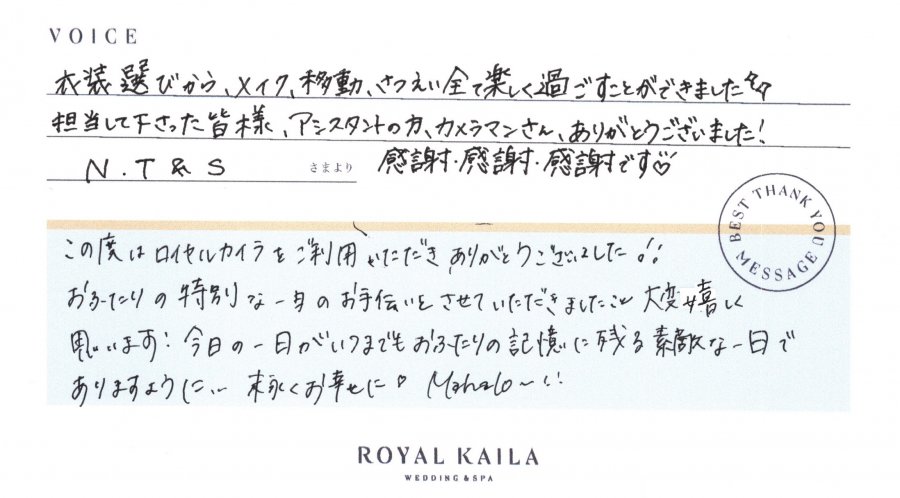 VOICE
衣装選びから、メイク、移動、さつえい全て楽しく過ごすことができました
担当して下さった皆様、アシスタントの方、カメラマンさん、ありがとうございました!
N.T & S さまより 感謝・感謝・感謝です♡
BEST THANK YOU MESSAGE
この度はロイヤルカイラをご利用いただきありがとうございました!!
おふたりの特別な一日のお手伝いをさせていただきましたこと大変嬉しく
思います! 今日の一日がいつまでもおふたりの記憶に残る素敵な一日で
ありますように... 末永くお幸せに♡ Mahalo~
ROYAL KAILA
WEDDING & SPA